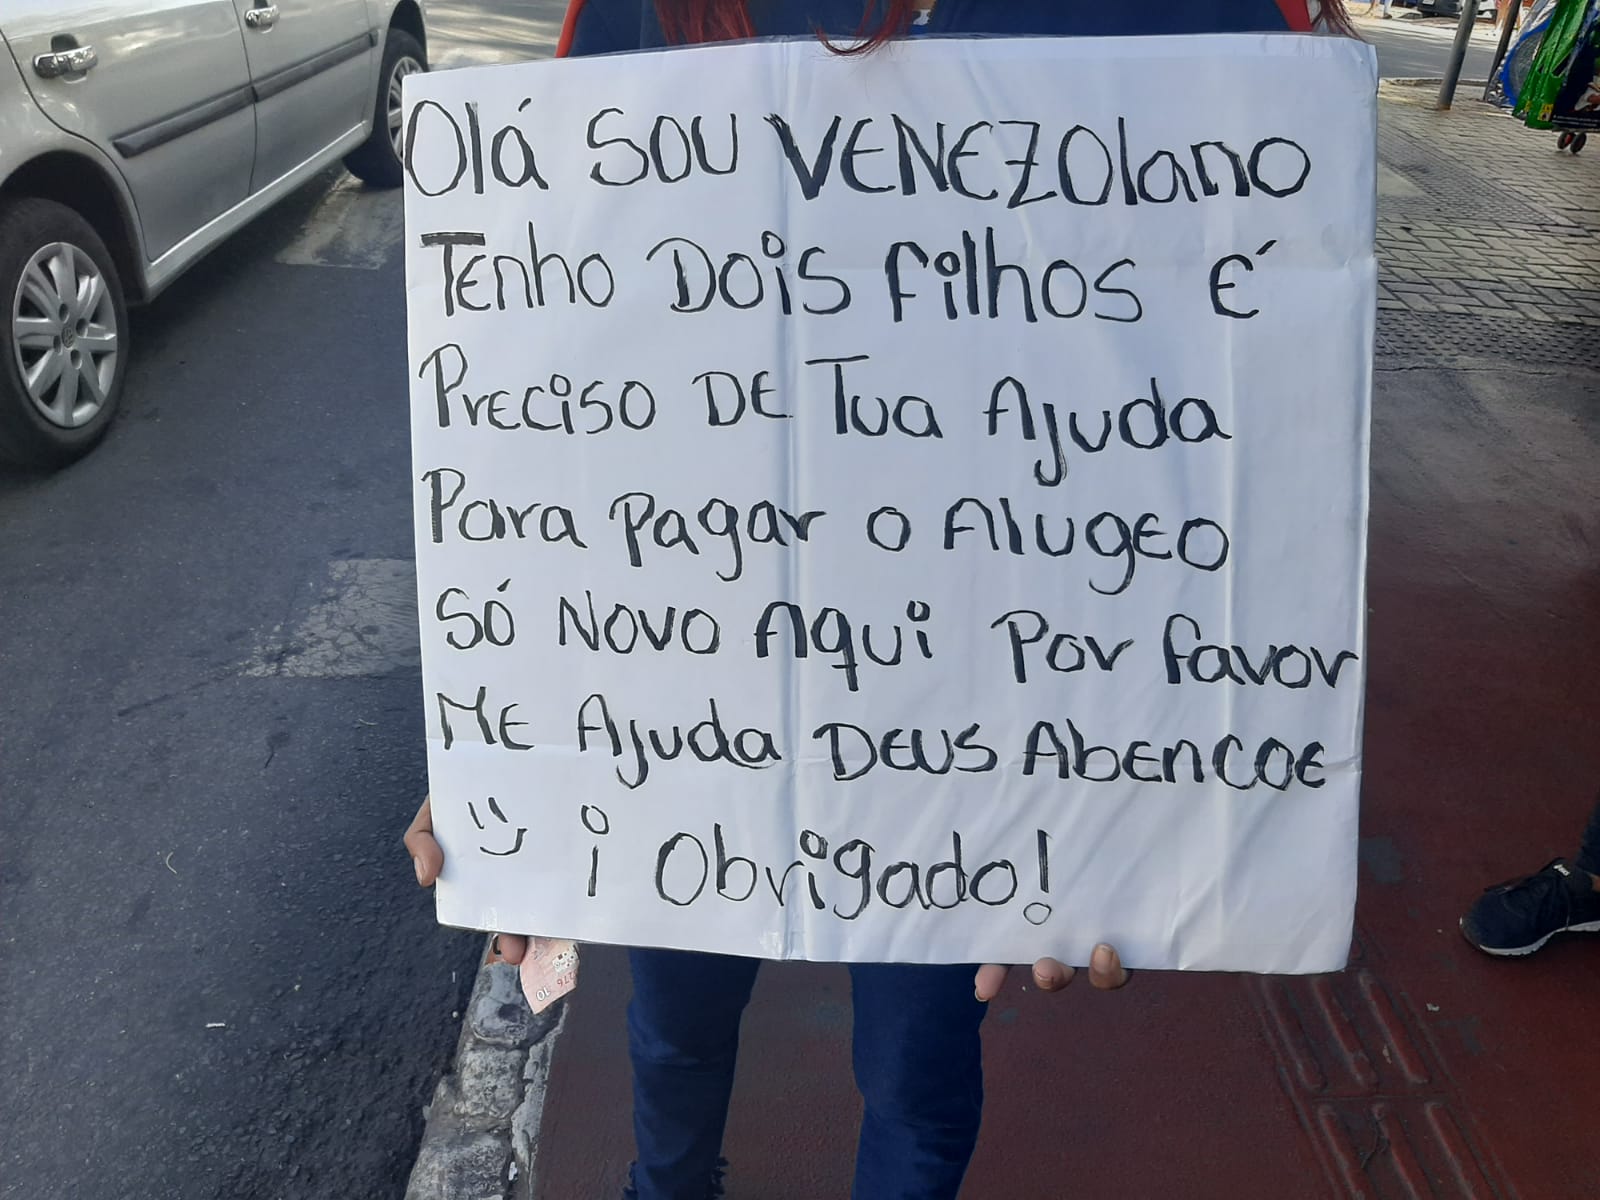 Olá SOU VENEZOlano
TEnho Dois filhos E´
PrECiso DE Tua Ajuda
Para Pagar O AlugEO
Só Novo Aqui Por favor
ME Ajuda DEUS AbENCOE
¡ Obrigado!
10 9276